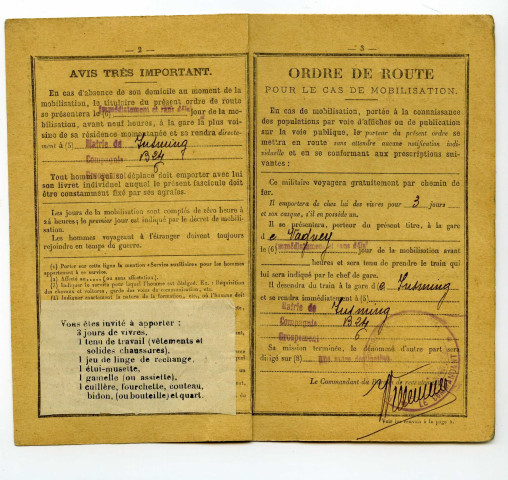 — 2 —
AVIS TRÈS IMPORTANT.
En cas d'absence de son domicile au moment de la
mobilisation, le titulaire du présent ordre de route
se présentera le (6) Immédiatement et sans délai jour de la mo-
bilisation, avant neuf heures, à la gare la plus voi-
sine de sa résidence momentanée et se rendra directe-
ment à (5) Mairie de Insming
Compagnie B24
Groupement 6
Tout homme qui se déplace doit emporter avec lui
son livret individuel auquel le présent fascicule doit
être constamment fixé par ses agrafes.
Les jours de la mobilisation sont comptés de zéro heure à
24 heures; le premier jour est indiqué par le décret de mobili-
sation.
Les hommes voyageant à l'étranger doivent toujours
rejoindre en temps de guerre.
(1) Porter sur cette ligne la mention «Service auxiliaire» pour les hommes
appartenant à ce service.
(2) Indiquer le service pour lequel l'homme est désigné. Ex. : Réquisition
des chevaux et voitures, garde des voies de communication, etc.
Vous êtes invité à apporter :
3 jours de vivres,
1 tenu de travail (vêtements et
solides chaussures),
1 jeu de linge de rechange,
1 étui-musette,
1 gamelle (ou assiette),
1 cuillère, fourchette, couteau,
bidon, (ou bouteille) et quart.
— 3 —
ORDRE DE ROUTE
POUR LE CAS DE MOBILISATION.
En cas de mobilisation, portée à la connaissance
des populations par voie d'affiches ou de publication
sur la voie publique, le porteur du présent ordre se
mettra en route sans attendre aucune notification indi-
viduelle et en se conformant aux prescriptions sui-
vantes :
Ce militaire voyagera gratuitement par chemin de
fer.
Il emportera de chez lui des vivres pour 3 jours
et son casque, s'il en possède un.
Il se présentera, porteur du présent titre, à la gare
de Vagney
le (6) Immédiatement et sans délai jour de la mobilisation avant
heures et sera tenu de prendre le train qui
lui sera indiqué par le chef de gare.
Il descendra du train à la gare de Insming
et se rendra immédiatement à (5)
Mairie de Insming
Compagnie B24
Groupement 6
Sa mission terminée, le dénommé d'autre part sera
dirigé sur (8) Une autre destination.
Le Commandant du Bureau de recrutement
LE COMMANDANT
Voir les renvois à la page 2.